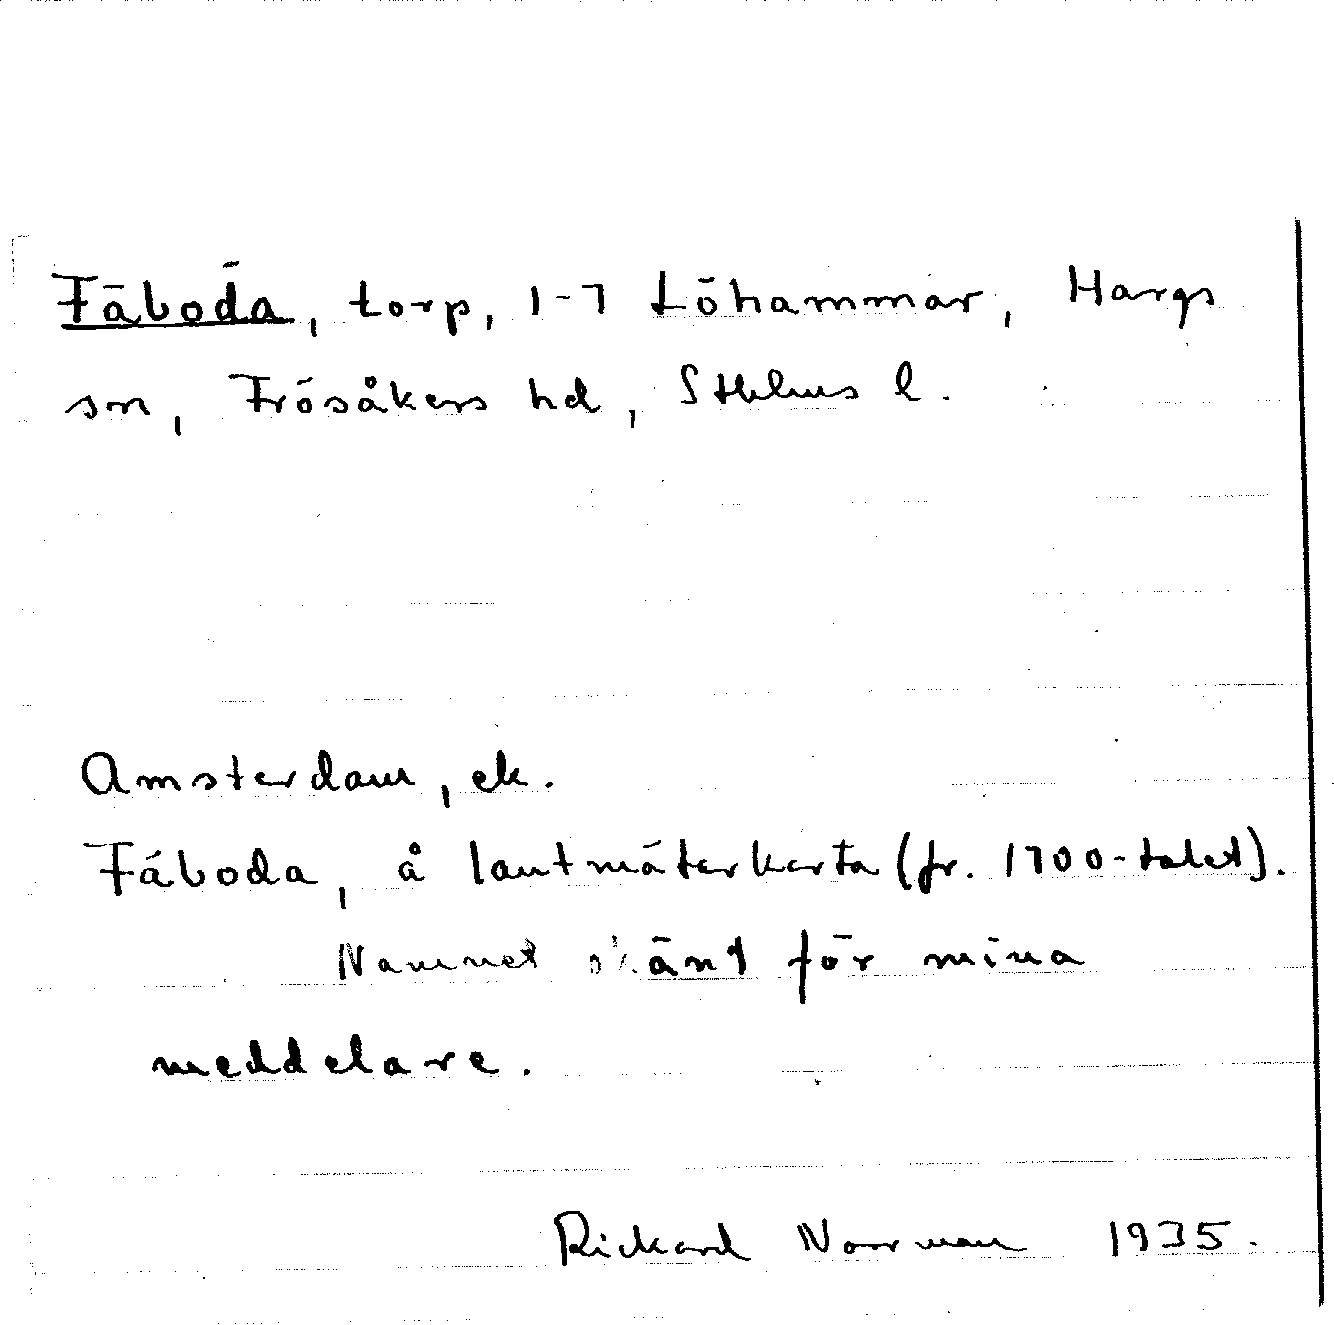 Fäboda, torp, 1-7 Löhammar, Hargs
sn, Frösåkers hd, Sthlms l.
Amsterdam, ek.
Fäboda, å lantmäterkarta (fr. 1700-talet).
Namnet okänt för mina
meddelare.
Rickard Norrman 1935.